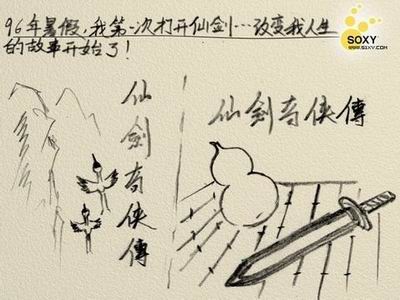 96年暑假,我第一次打开仙剑…改变我人生
的故事开始了!
仙剑奇侠傳
仙剑奇侠傳
SOXY
WWW.SOXY.COM